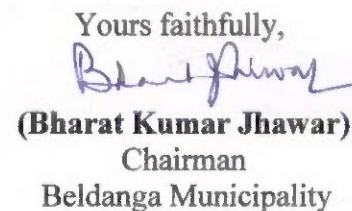 Yours faithfully,
Bharat Jhawar
(Bharat Kumar Jhawar)
Chairman
Beldanga Municipality